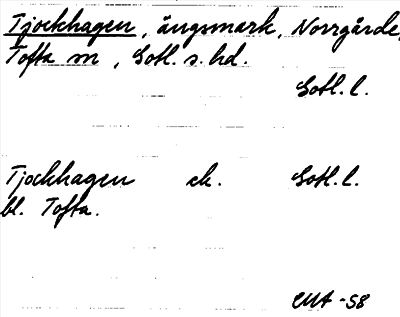 Tjockhagen, ängsmark, Norrgårde,
Tofta sn, Gotl. s. hd.
Gotl. l.
Tjockhagen ek. Gotl. l.
bl. Tofta.
-58